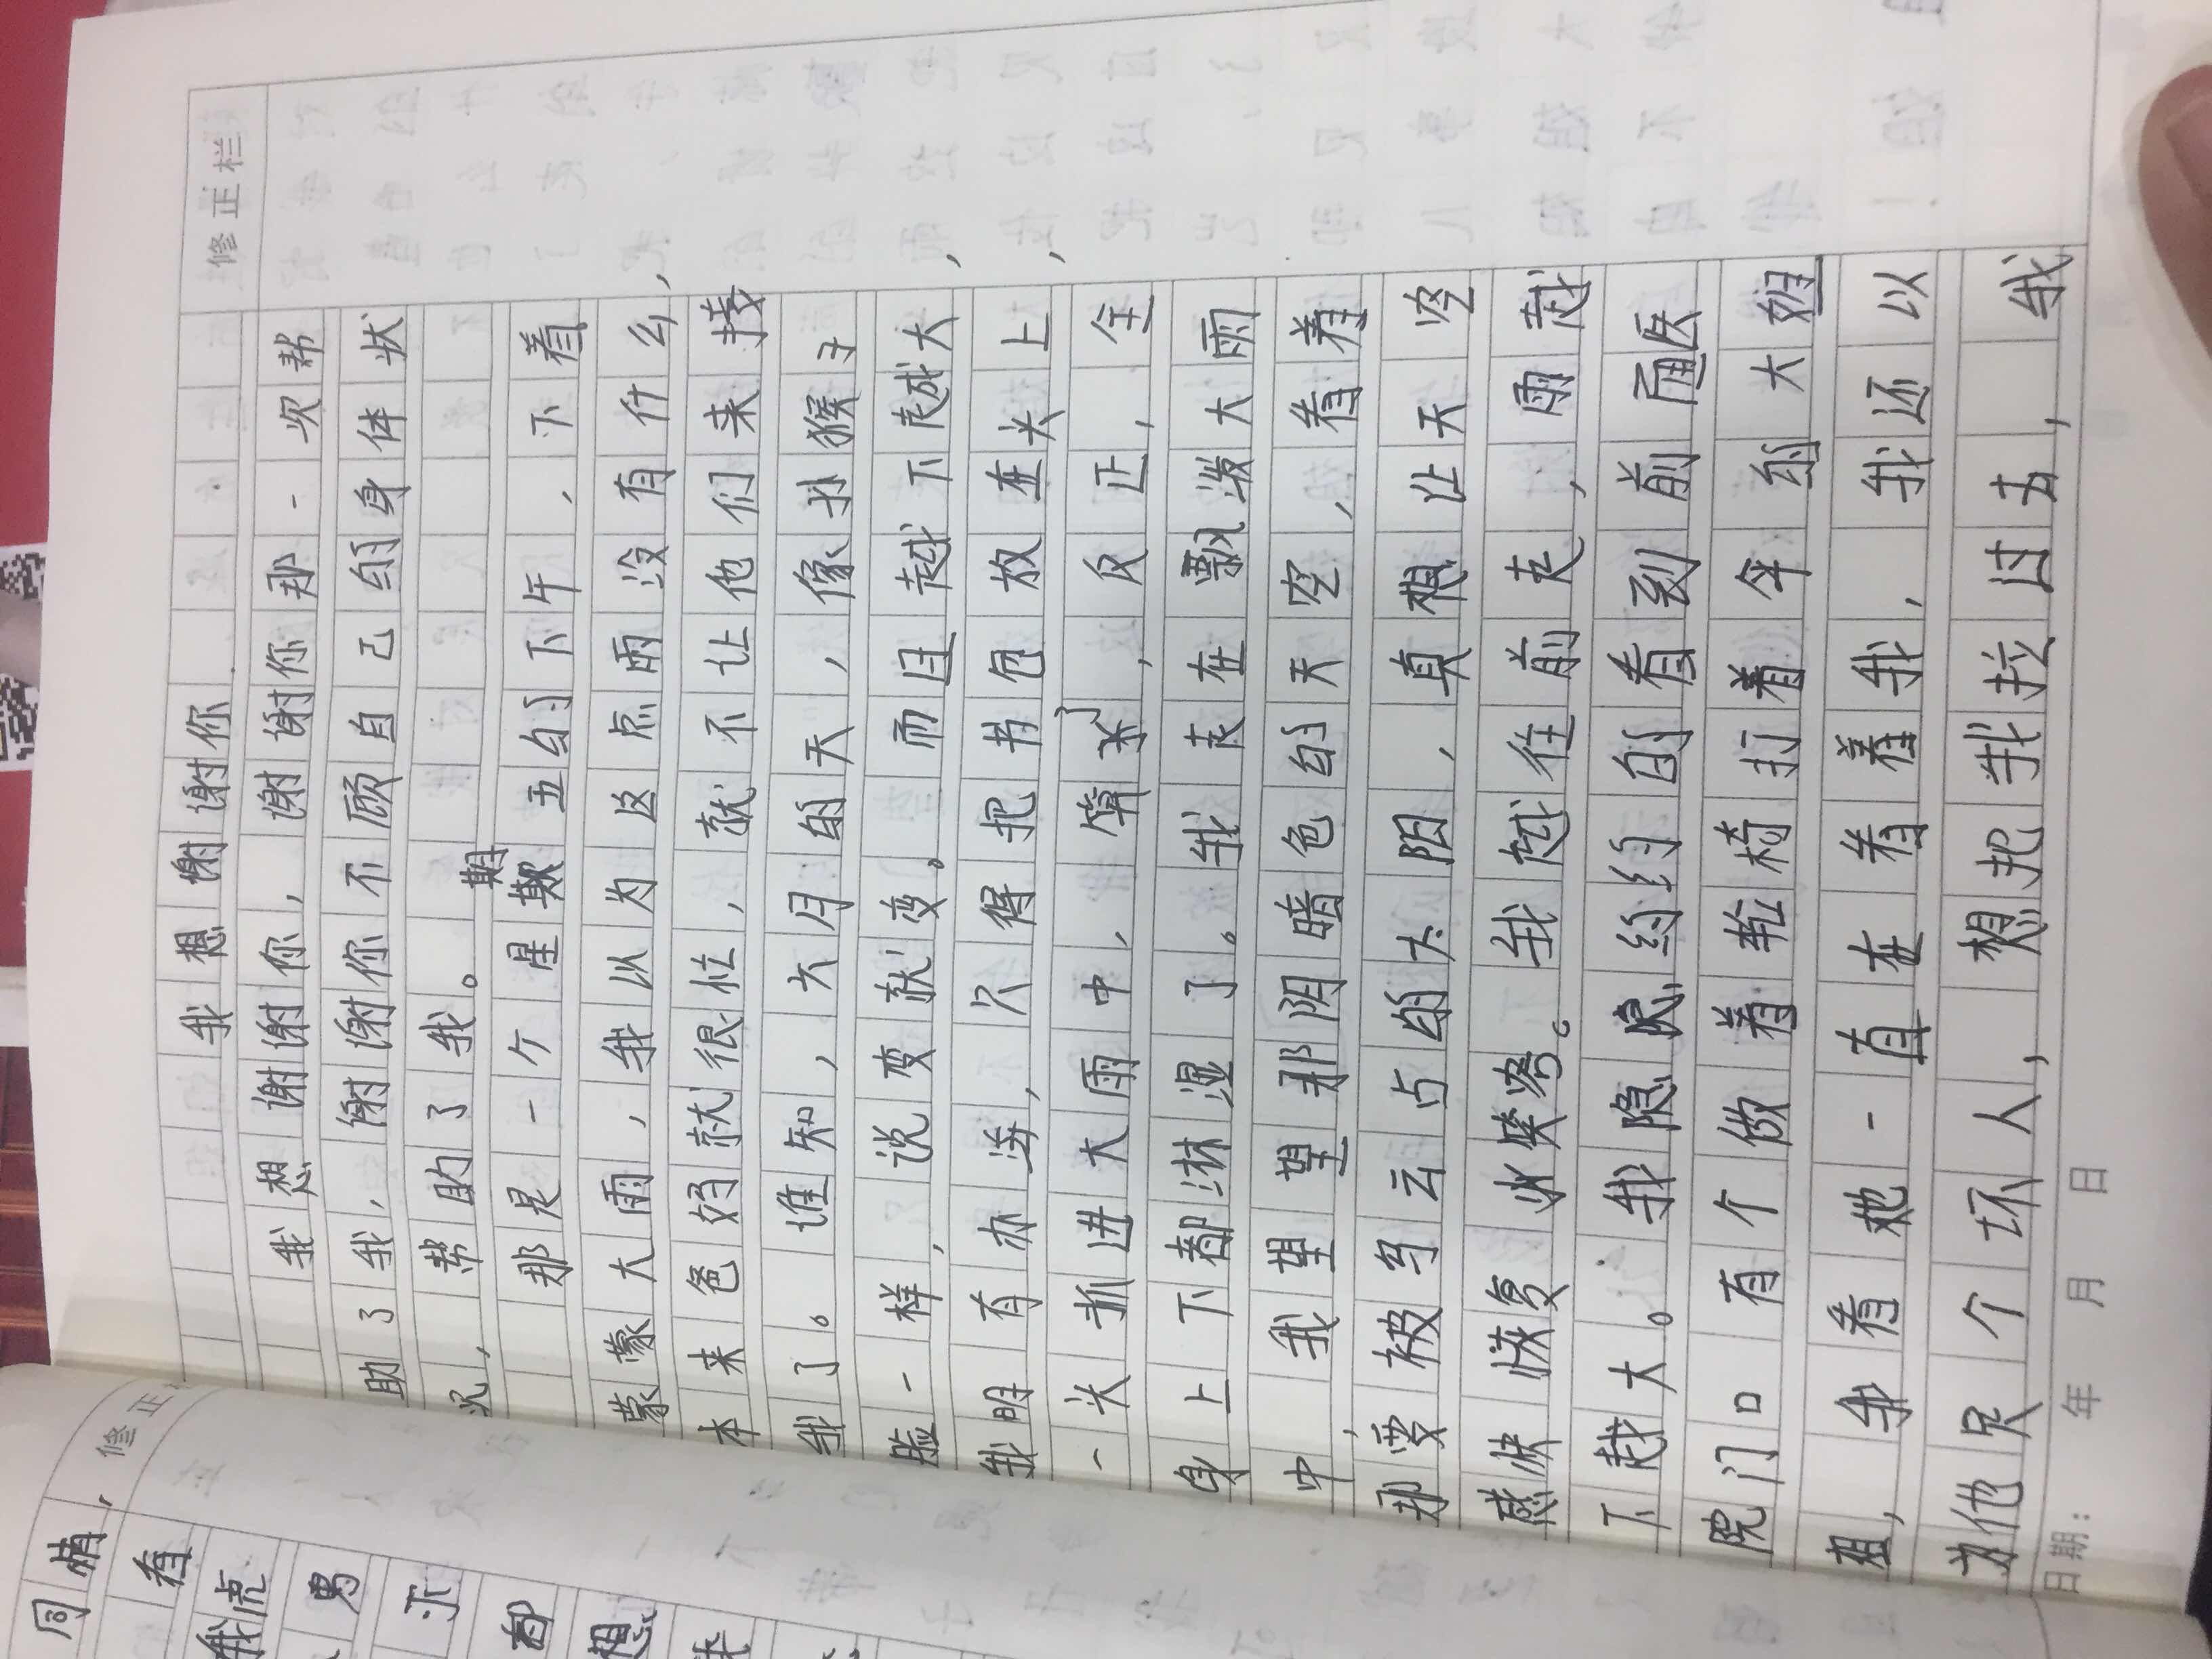 修正栏
我想谢谢你
我想谢谢你，谢谢你那一次帮
助了我，谢谢你不顾自己的身体状
况，帮助了我。
那是一个星期五的下午，下着
蒙蒙大雨，我以为这点雨没有什么，
本来爸妈就很忙，就不让他们来接
我了。谁知，六月的天，像孙猴子
脸一样，说变就变。而且越下越大，
我明有办法，只得把书包放在头上，
一头抓进大雨中，算了，反正，全
身上下都淋湿了。我走在飘泼大雨
中，我望望那阴暗色的天空，看着
那要被乌云占的太阳，真想让天空
赶快恢复。我越往前走，雨越
下越大。我隐隐约约的看到前面医
院门口有个做着轮椅打着伞的大姐
姐，我看她一直在看着我，我还以
为他是个坏人，想把我拉过去，我
日期： 年 月 日
修正
同情，
看
我虎
男
都
想